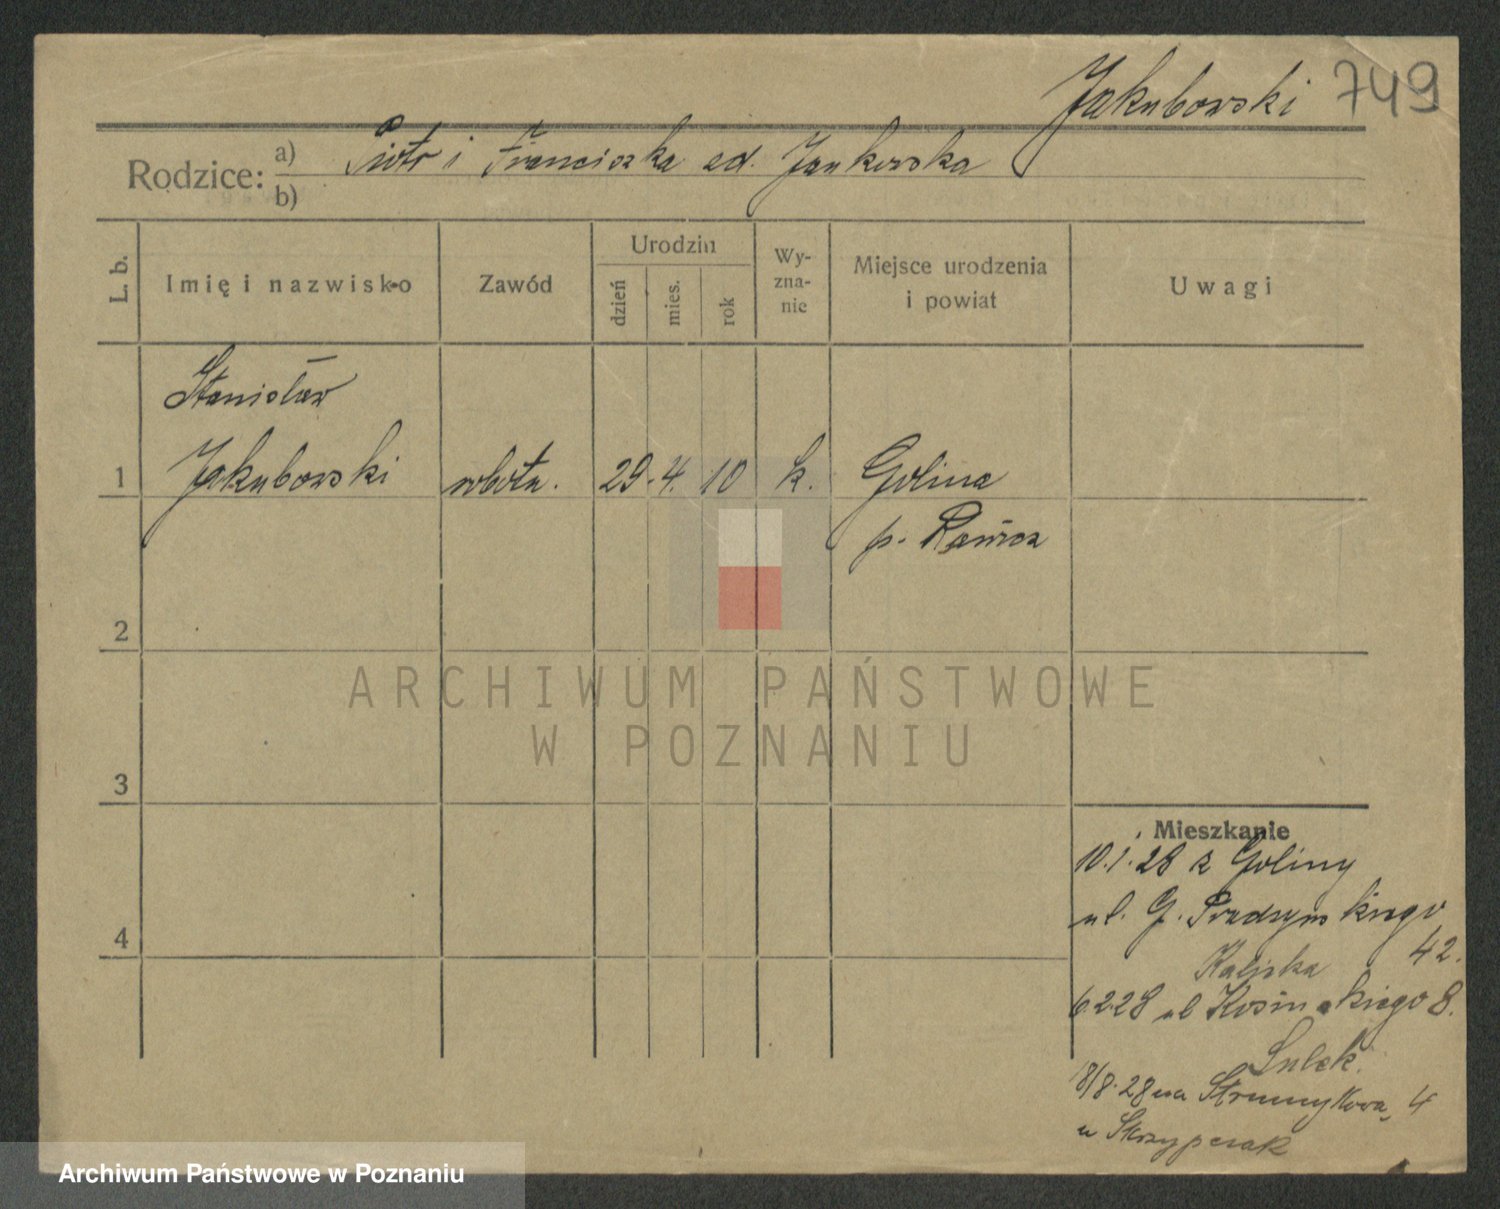 Jakubowski 749
Rodzice: a) Piotr i Franciszka zd. Jankowska
b)
L. b.
Imię i nazwisko
Zawód
Urodzin
dzień
mies.
rok
Wy-
zna-
nie
Miejsce urodzenia
i powiat
Uwagi
Stanisław
1 Jakubowski robotn. 29. 4. 10 k. Golina
p. Rawicz
2
3
4
Mieszkanie
10.1.28 z Goliny
ul. G. Prądzyńskiego
42.
Kaliska
6.2.28 ul Kosińskiego 8.
18/8.28 na Strumykowa 4
u Skrzypczak
ARCHIWUM PAŃSTWOWE
W POZNANIU
Archiwum Państwowe w Poznaniu